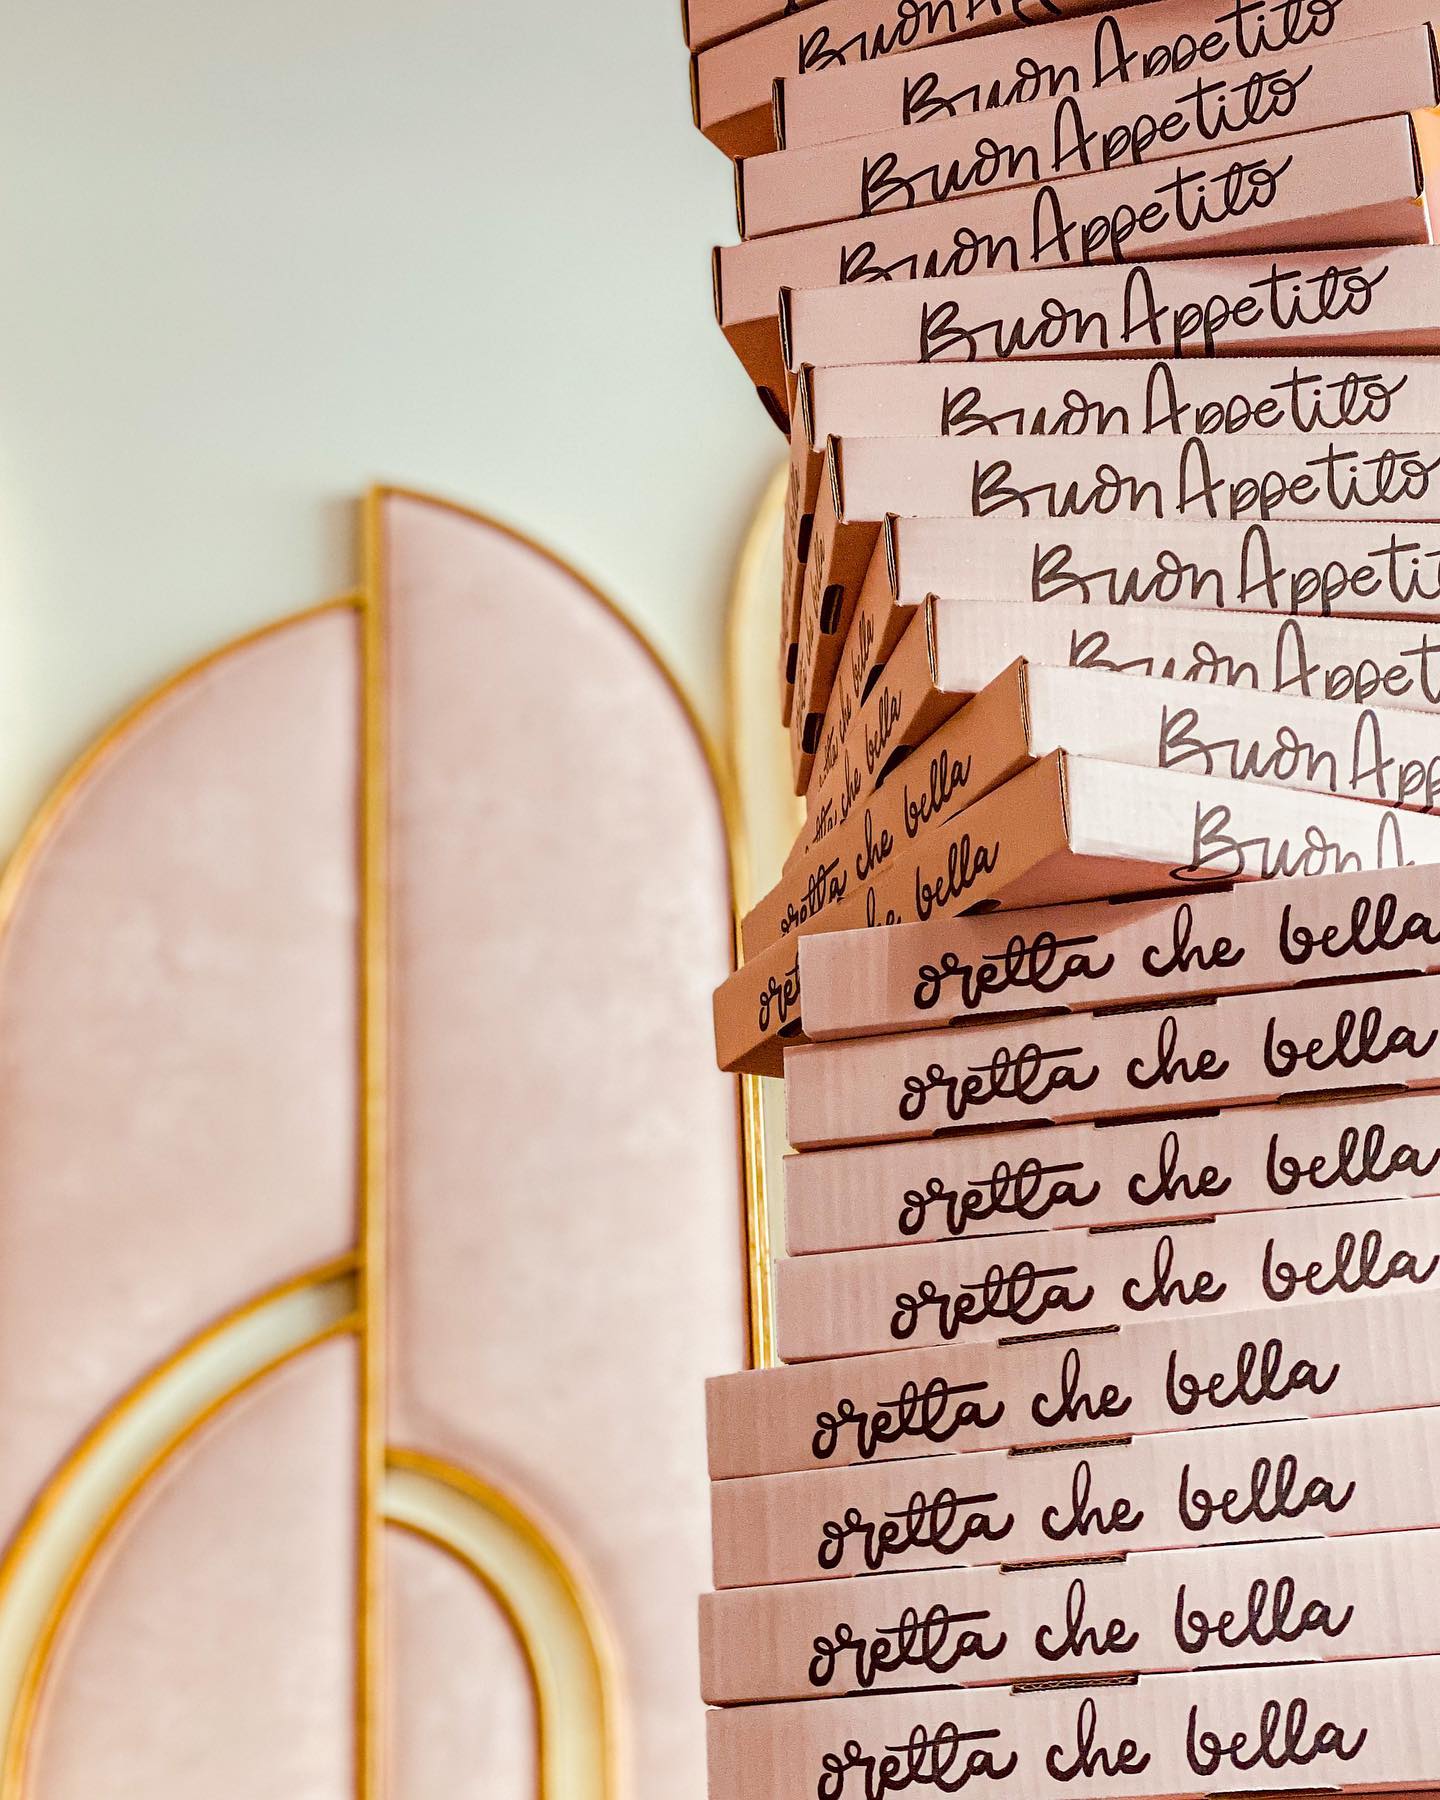 Buon
Buon Appetito
Buon Appetito
Buon Appetito
Buon Appetito
Buon Appetito
Buon Appetito
Buon Appetit
Buon Appet
Buon App
Buon A
che bella
che bella
oretta che bella
che bella
oretta che bella
oretta che bella
oretta che bella
oretta che bella
oretta che bella
oretta che bella
oretta che bella
oretta che bella